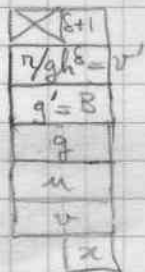 δ+1
r/ghᵟ = v'
g' = B
g
u
v
x